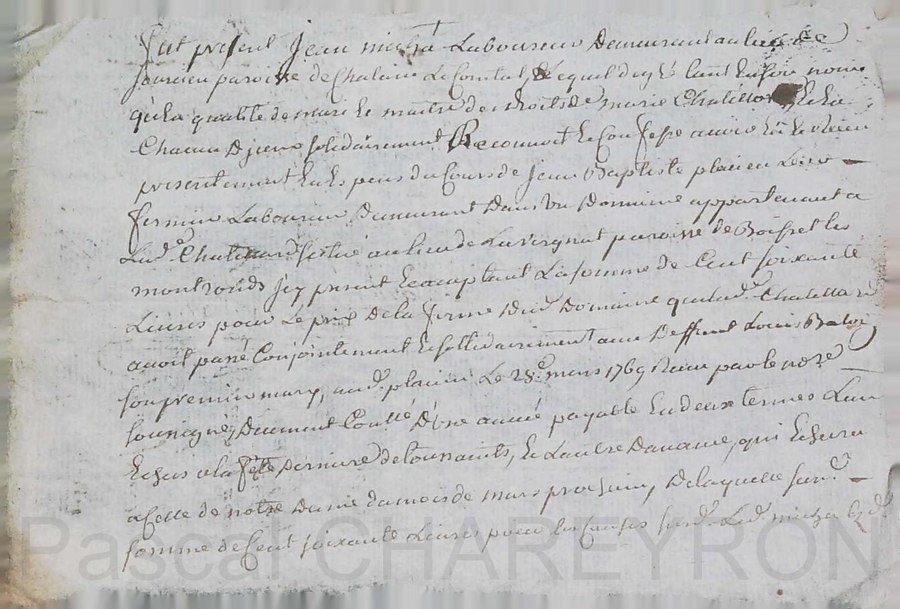 fut présent Jean micha Laboureur Demeurant au lieu de
paroisse de Chalain Le Comtal, Lequel de gré tant En son nom
qu'En qualité de mari Et maitre des droits de marie Chatillon Et Elle
Chacun D'jeux solidairement Reconnoit Et Confesse avoir Eu Et Receu
présentement Et Es pces du Cours de Jean Baptiste plaieu Leur
fermier Laboureur Demeurant Dans Un Domaine appartenant a
Lad.e Chatillard situé au lieu de Lavergnat paroisse de Boisset les
montronds jcy present Et acceptant La somme de Cent soixante
Livres pour Le prix De la ferme Dud. Domaine que lad.e Chatillard
avoit passé Conjointement Et sollidairement avec Deffunt Louis
son premier mary, aud. plaieu Le 28.e mars 1769 Receu par le no.re
soussigné, Deument Conllé D'une année payable En deux termes L'un
Echus a la fête Derniere de toussaints, Et L'autre Davance, qui Echerra
a Celle de notre Dame du mois de mars prochain, De laquelle
somme de Cent soixante Livres pour les Causes susd. Led. micha Esd.
Pascal CHAREYRON